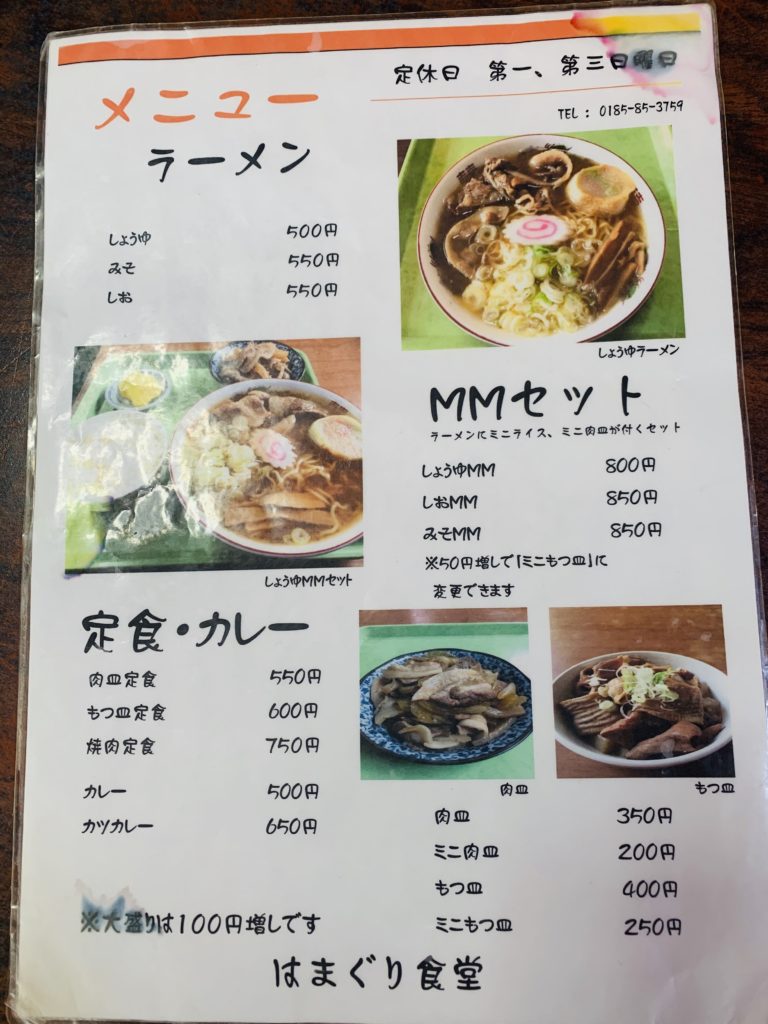 定休日 第一、第三日曜日
メニュー
TEL : 0185-85-3759
ラーメン
しょうゆ 500円
みそ 550円
しお 550円
しょうゆラーメン
しょうゆMMセット
MMセット
ラーメンにミニライス、ミニ肉皿が付くセット
しょうゆMM 800円
しおMM 850円
みそMM 850円
※50円増しで「ミニもつ皿」に
変更できます
定食・カレー
肉皿定食 550円
もつ皿定食 600円
焼肉定食 750円
カレー 500円
カツカレー 650円
※大盛りは100円増しです
肉皿
もつ皿
肉皿 350円
ミニ肉皿 200円
もつ皿 400円
ミニもつ皿 250円
はまぐり食堂